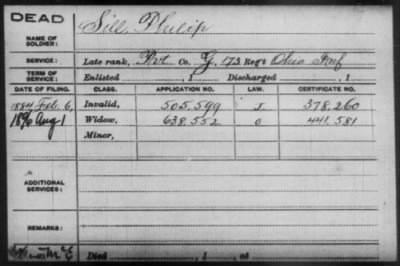 DEAD
NAME OF SOLDIER: Sill, Philip
SERVICE: Late rank, Pvt Co. G, 173 Reg't Ohio Inf
TERM OF SERVICE: Enlisted , 1 Discharged , 1
DATE OF FILING. CLASS. APPLICATION NO. LAW. CERTIFICATE NO.
1884 Feb. 6, Invalid, 505,599 J 378,260
1890 Aug 1 Widow, 638,552 O 441,581
Minor,
ADDITIONAL SERVICES:
REMARKS:
Died , 1 , at